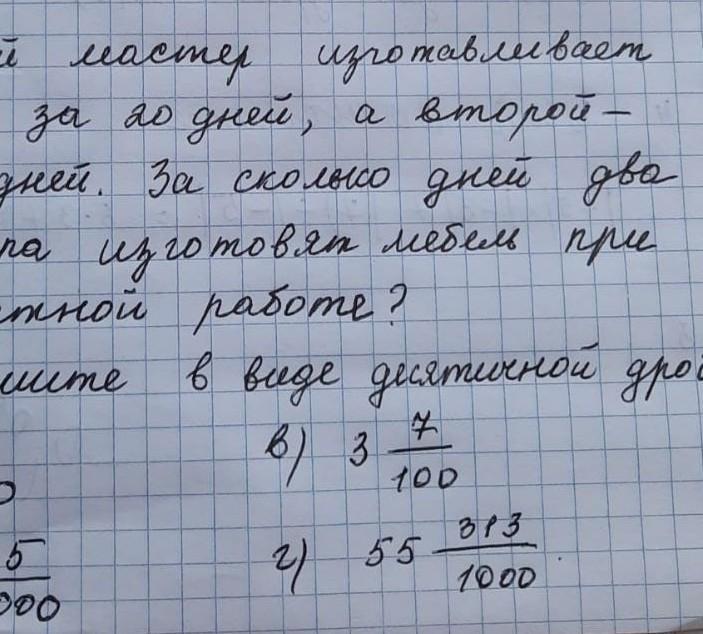 й мастер изготавливает
за 20 дней, а второй –
дней. За сколько дней два
ра изготовят мебель при
тной работе?
шите в виде десятичной дроб
в) 3 7/100
5/000
г) 55 313/1000